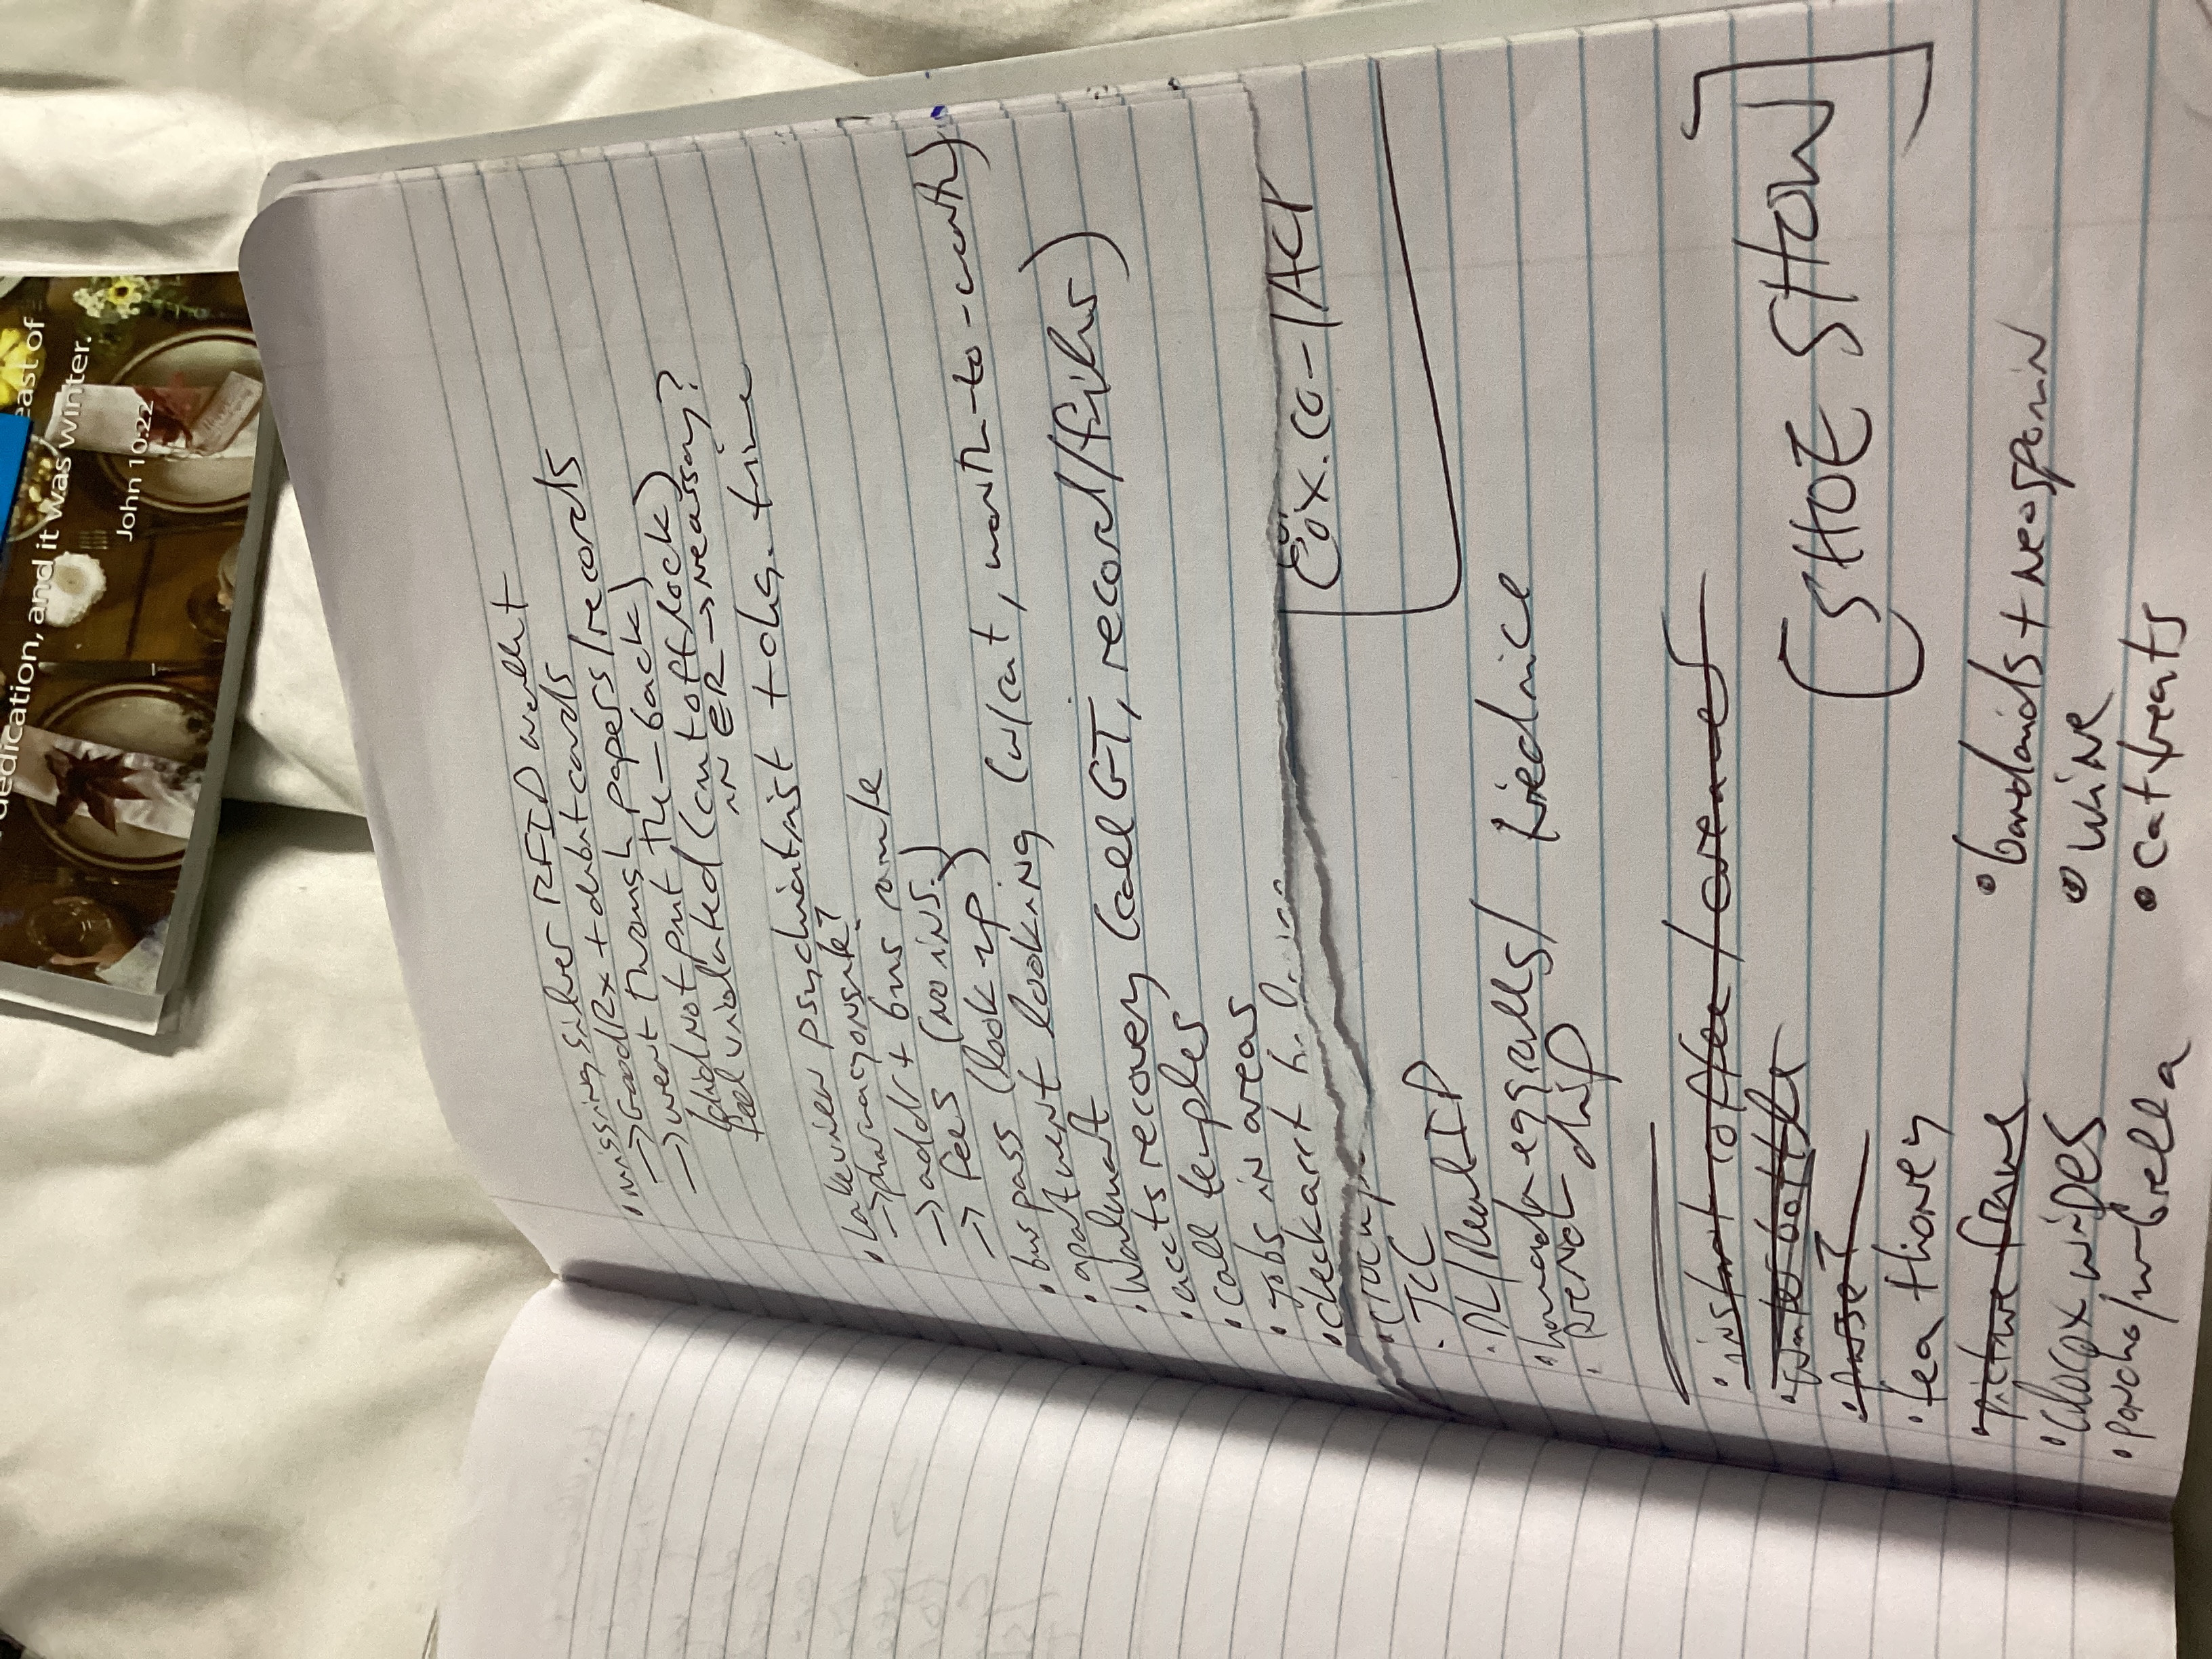 dedication, and it was winter.
east of
John 10:22
• missing silver RFID wallet
→ GoodRx + debit cards
→ went through papers/records
(did not put them back)
feel violated (cut off lock)
in ER → necessary?
• Lakeview psychiatrist + chg. time
→ pharmacy onsite?
→ addr + bus route
→ fees (no ins.)
• bus pass (look up)
• apartment looking (w/cat, month-to-month)
• Walmart
• accts recovery (call GT, record/files)
• call temples
• jobs in areas
• check acct
Cox.com/ACP
• TCC
• DL/Real ID
• homemade eggrolls/ friedrice
• French dip
• instant coffee/creamer
• water bottle
• purse?
[SHOE SHOW]
• tea + honey
• picture frame
• bandaids + neosporin
• clorox wipes
• wine
• poncho/umbrella
• cat treats